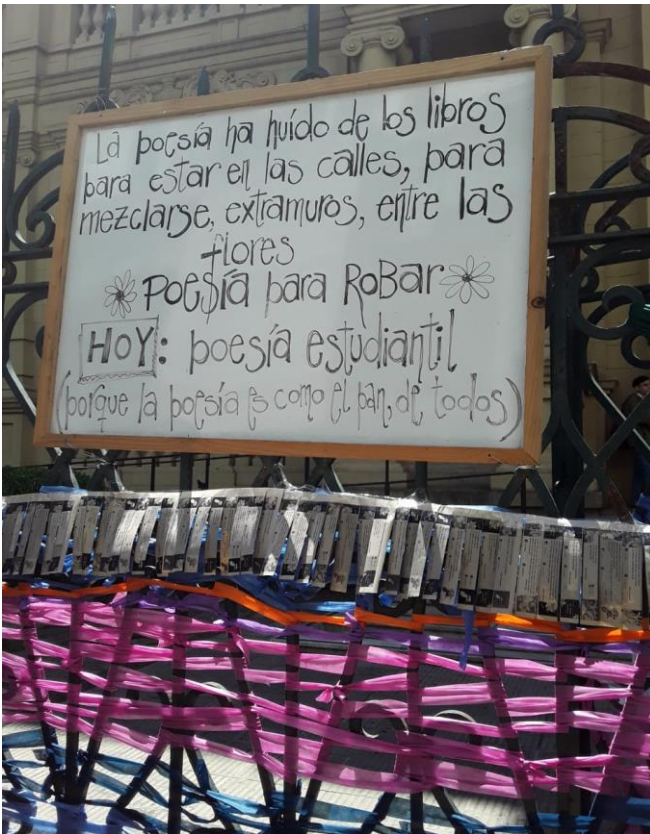 La poesía ha huído de los libros
para estar en las calles, para
mezclarse, extramuros, entre las
flores
Poesía para RoBar
HOY: poesía estudiantil
(porque la poesía es como el pan, de todos)